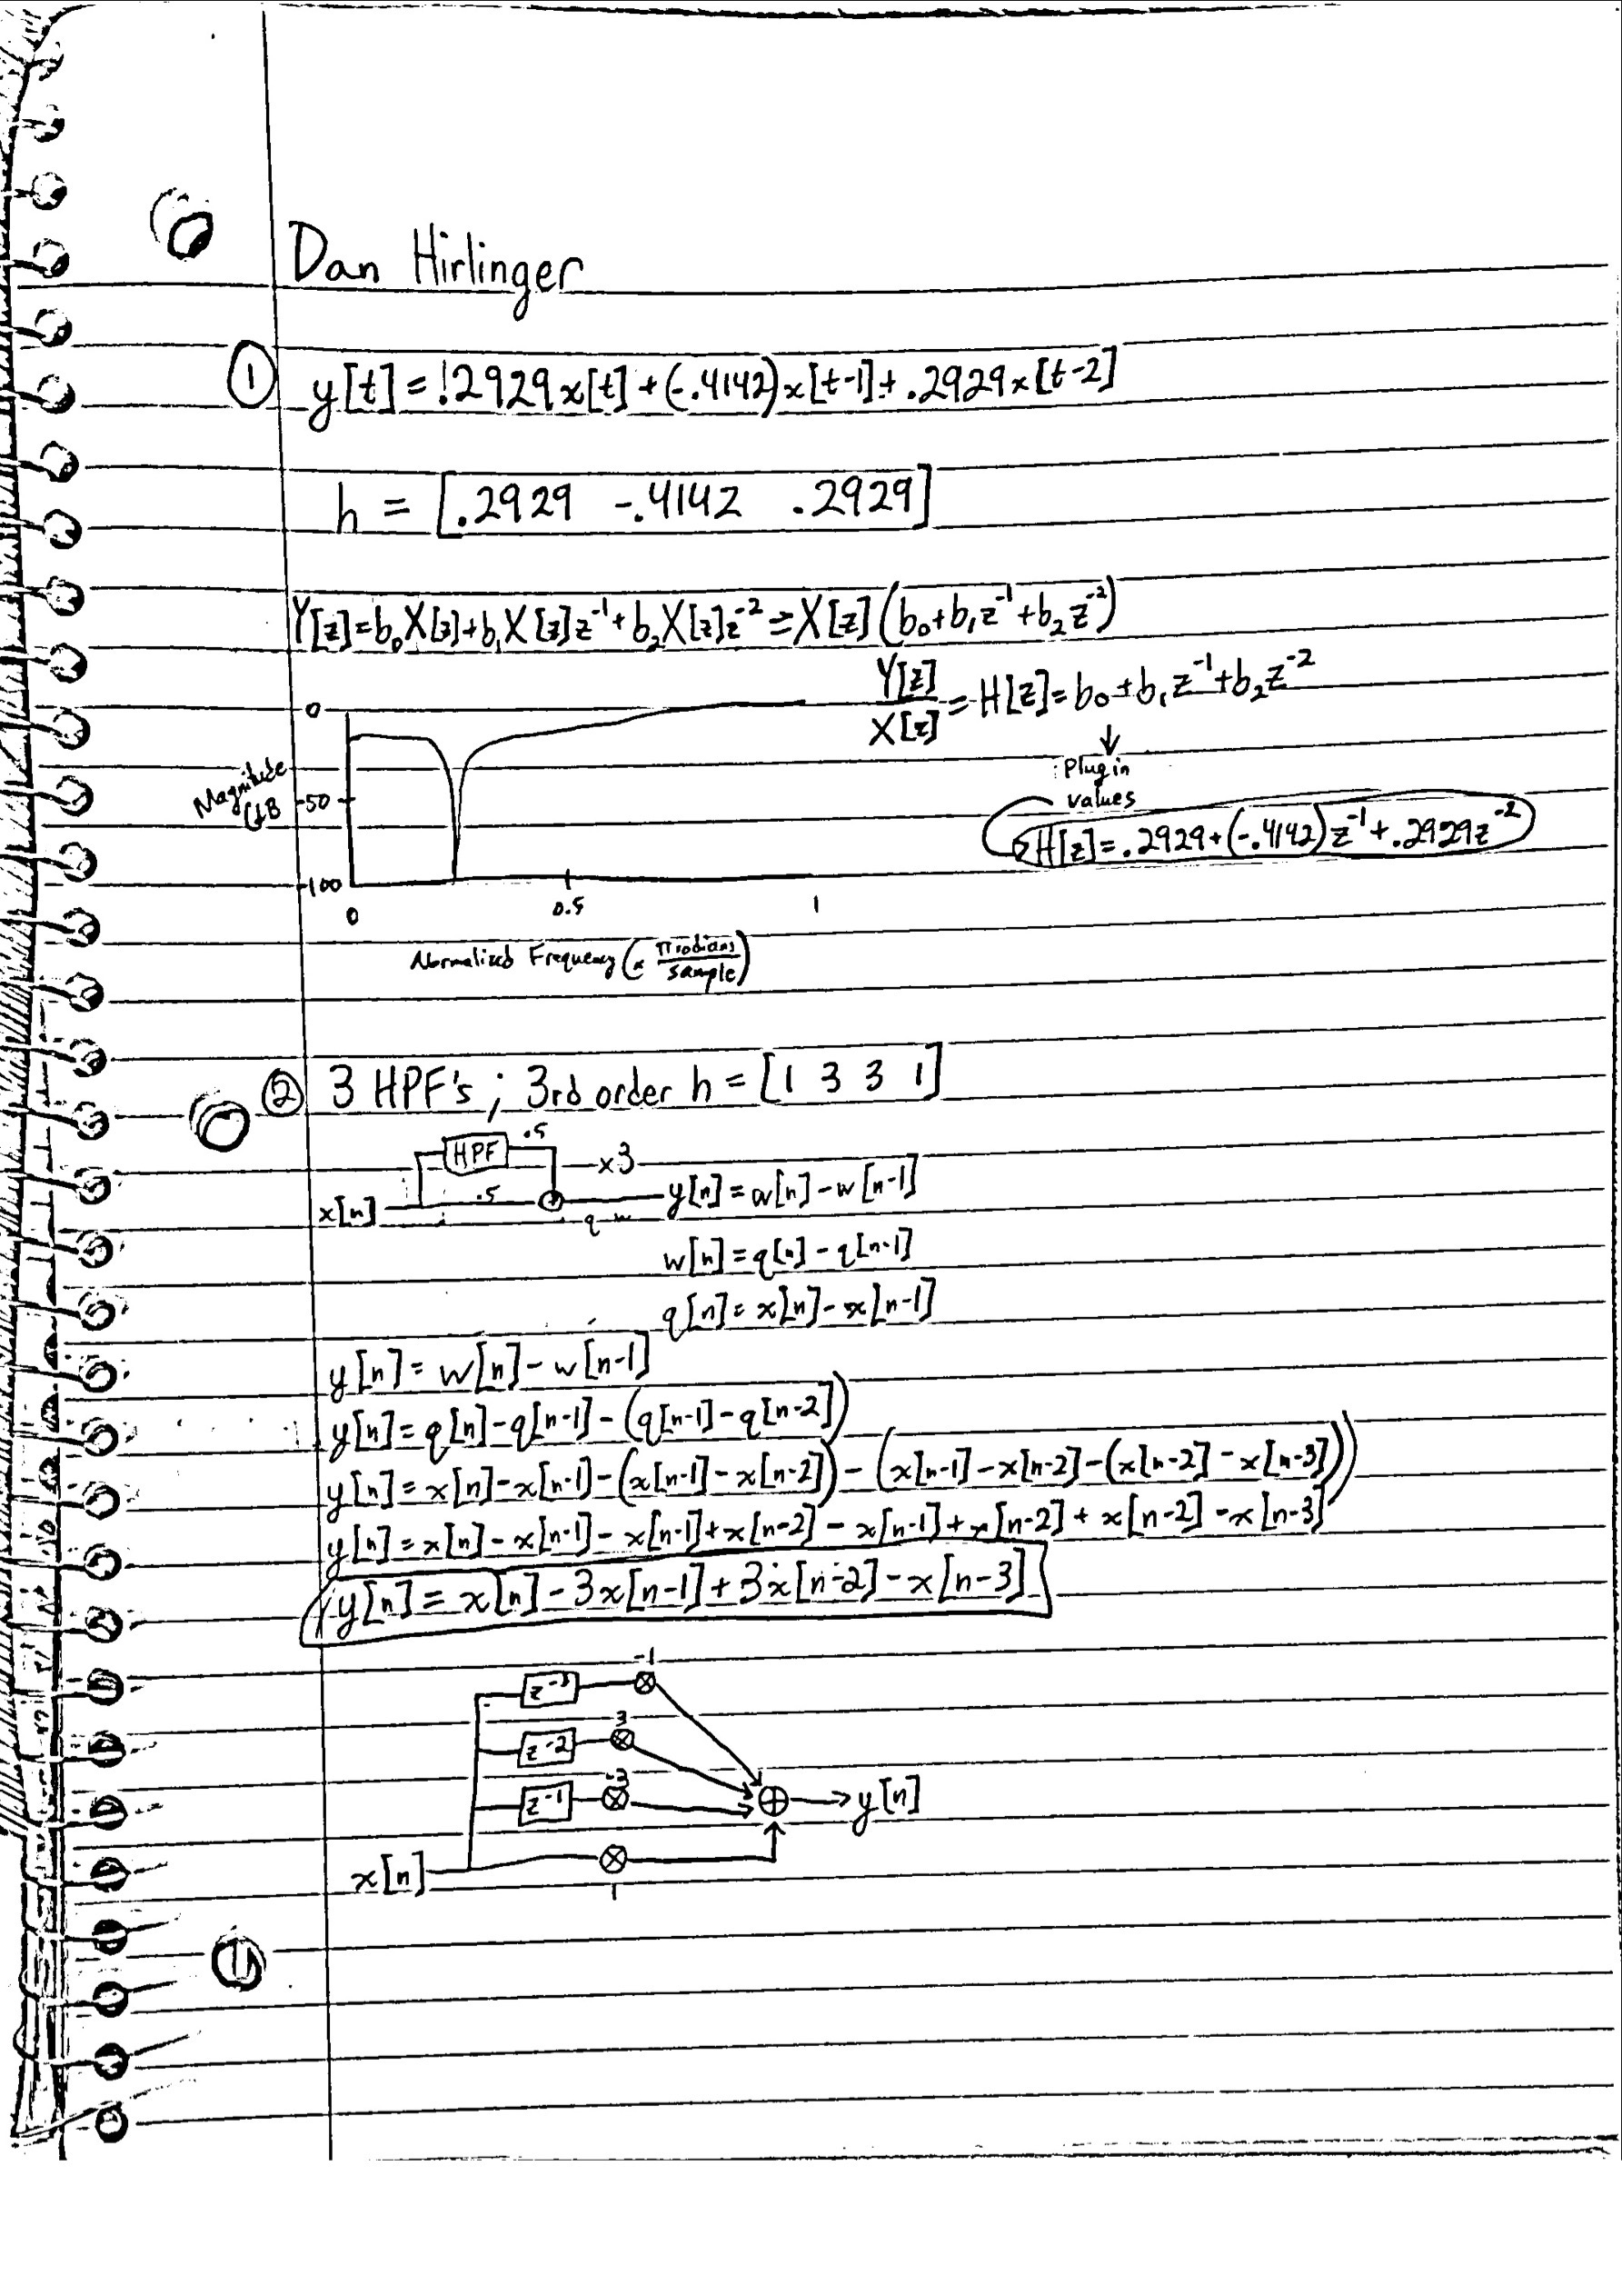 Dan Hirlinger
① y[t] = .2929x[t] + (-.4142)x[t-1] + .2929x[t-2]
h = [.2929 -.4142 .2929]
Y[z] = b₀X[z] + b₁X[z]z⁻¹ + b₂X[z]z⁻² = X[z](b₀ + b₁z⁻¹ + b₂z⁻²)
Y[z]/X[z] = H[z] = b₀ + b₁z⁻¹ + b₂z⁻²
↓
Plug in
values
H[z] = .2929 + (-.4142)z⁻¹ + .2929z⁻²
0
Magnitude
dB
-50
-100
0 0.5 1
Normalized Frequency (× π radians/sample)
② 3 HPF's ; 3rd order h = [1 3 3 1]
HPF .5 x3
x[n] .5 q w y[n] = w[n] - w[n-1]
w[n] = q[n] - q[n-1]
q[n] = x[n] - x[n-1]
y[n] = w[n] - w[n-1]
y[n] = q[n] - q[n-1] - (q[n-1] - q[n-2])
y[n] = x[n] - x[n-1] - (x[n-1] - x[n-2]) - (x[n-1] - x[n-2] - (x[n-2] - x[n-3]))
y[n] = x[n] - x[n-1] - x[n-1] + x[n-2] - x[n-1] + x[n-2] + x[n-2] - x[n-3]
y[n] = x[n] - 3x[n-1] + 3x[n-2] - x[n-3]
z⁻³ -1
z⁻² 3
z⁻¹ -3
y[n]
x[n] 1